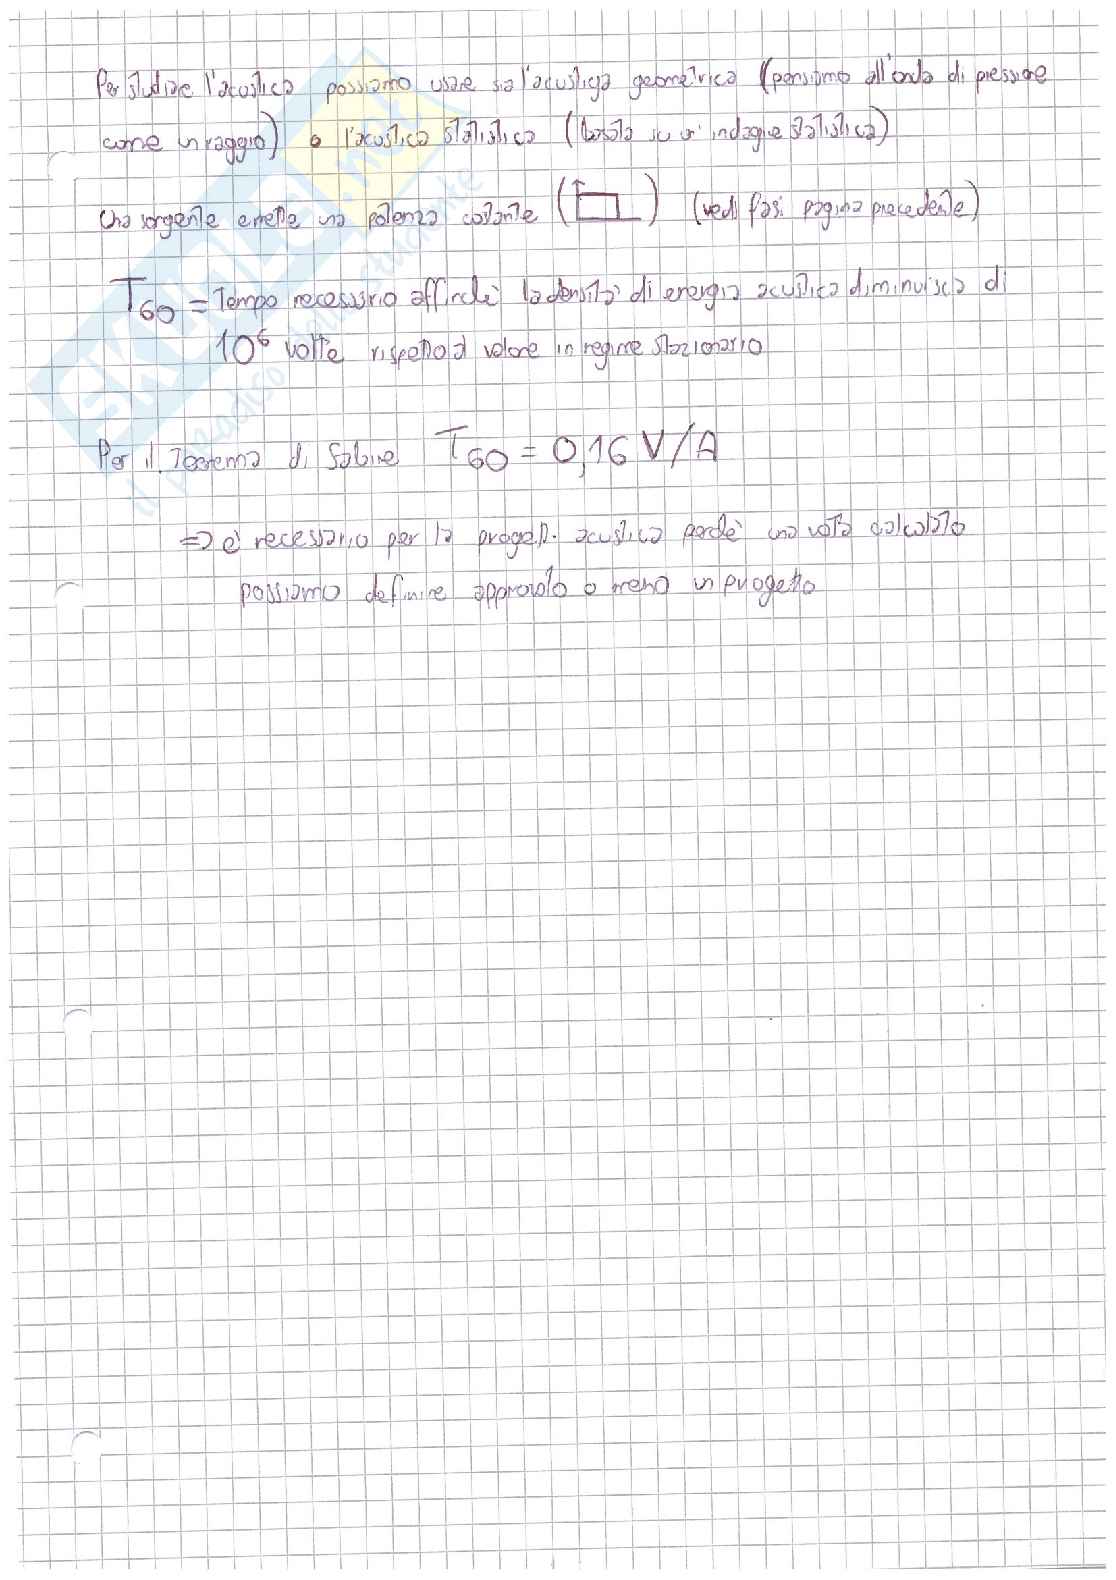 Per studiare l'acustica possiamo usare sia l'acustica geometrica (pensiamo all'onda di pressione
come un raggio) o l'acustica statistica (basata su un'indagine statistica)
Una sorgente emette una potenza costante ( ) (vedi fasi pagina precedente)
T60 = Tempo necessario affinché la densità di energia acustica diminuisca di
10^6 volte rispetto al valore in regime stazionario
Per il Teorema di Sabine T60 = 0,16 V/A
=> è necessario per la progett. acustica perché una volta calcolato
possiamo definire approvato o meno un progetto
SKUOLA.net
il paradiso dello studente